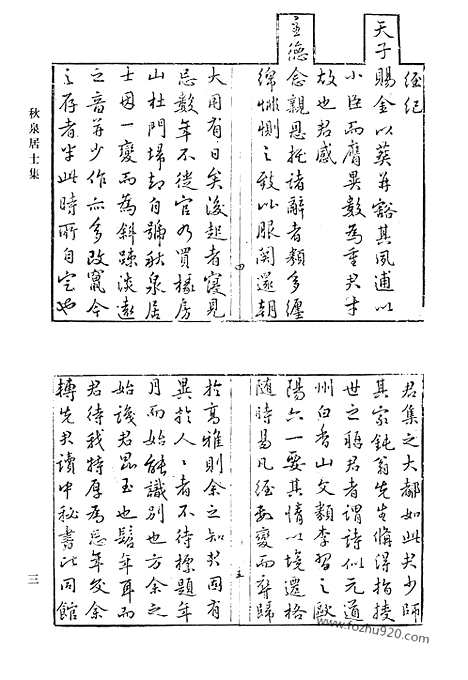 經紀
天子賜金以葬并豁其夙逋以
小臣而膺異數為重君才
故也君感
主德念親恩托諸辭者類多纏
綿悱惻之致以服闋還朝
大用有日矣後起者寖見
忌數年不徙官乃買椽房
山杜門埽却自號秋泉居
士 一變而為斜疎淡遠
之音并少作亦多改竄今
之存者半此時所自定也
四
秋泉居士集
君集之大都如此君少師
其家鈍翁先生備得指授
世之 君者謂詩似元道
州白香山文類李習之歐
陽六一要其情以境遷格
隨時易凡經數變而 歸
於高雅則余之知君固有
異於人人者不待標題年
月而始能識別也方余之
始識君昆玉也髫年耳而
君待我特厚為忘年交余
轉先君讀中秘書比同館
五
三
www.fozhu920.com